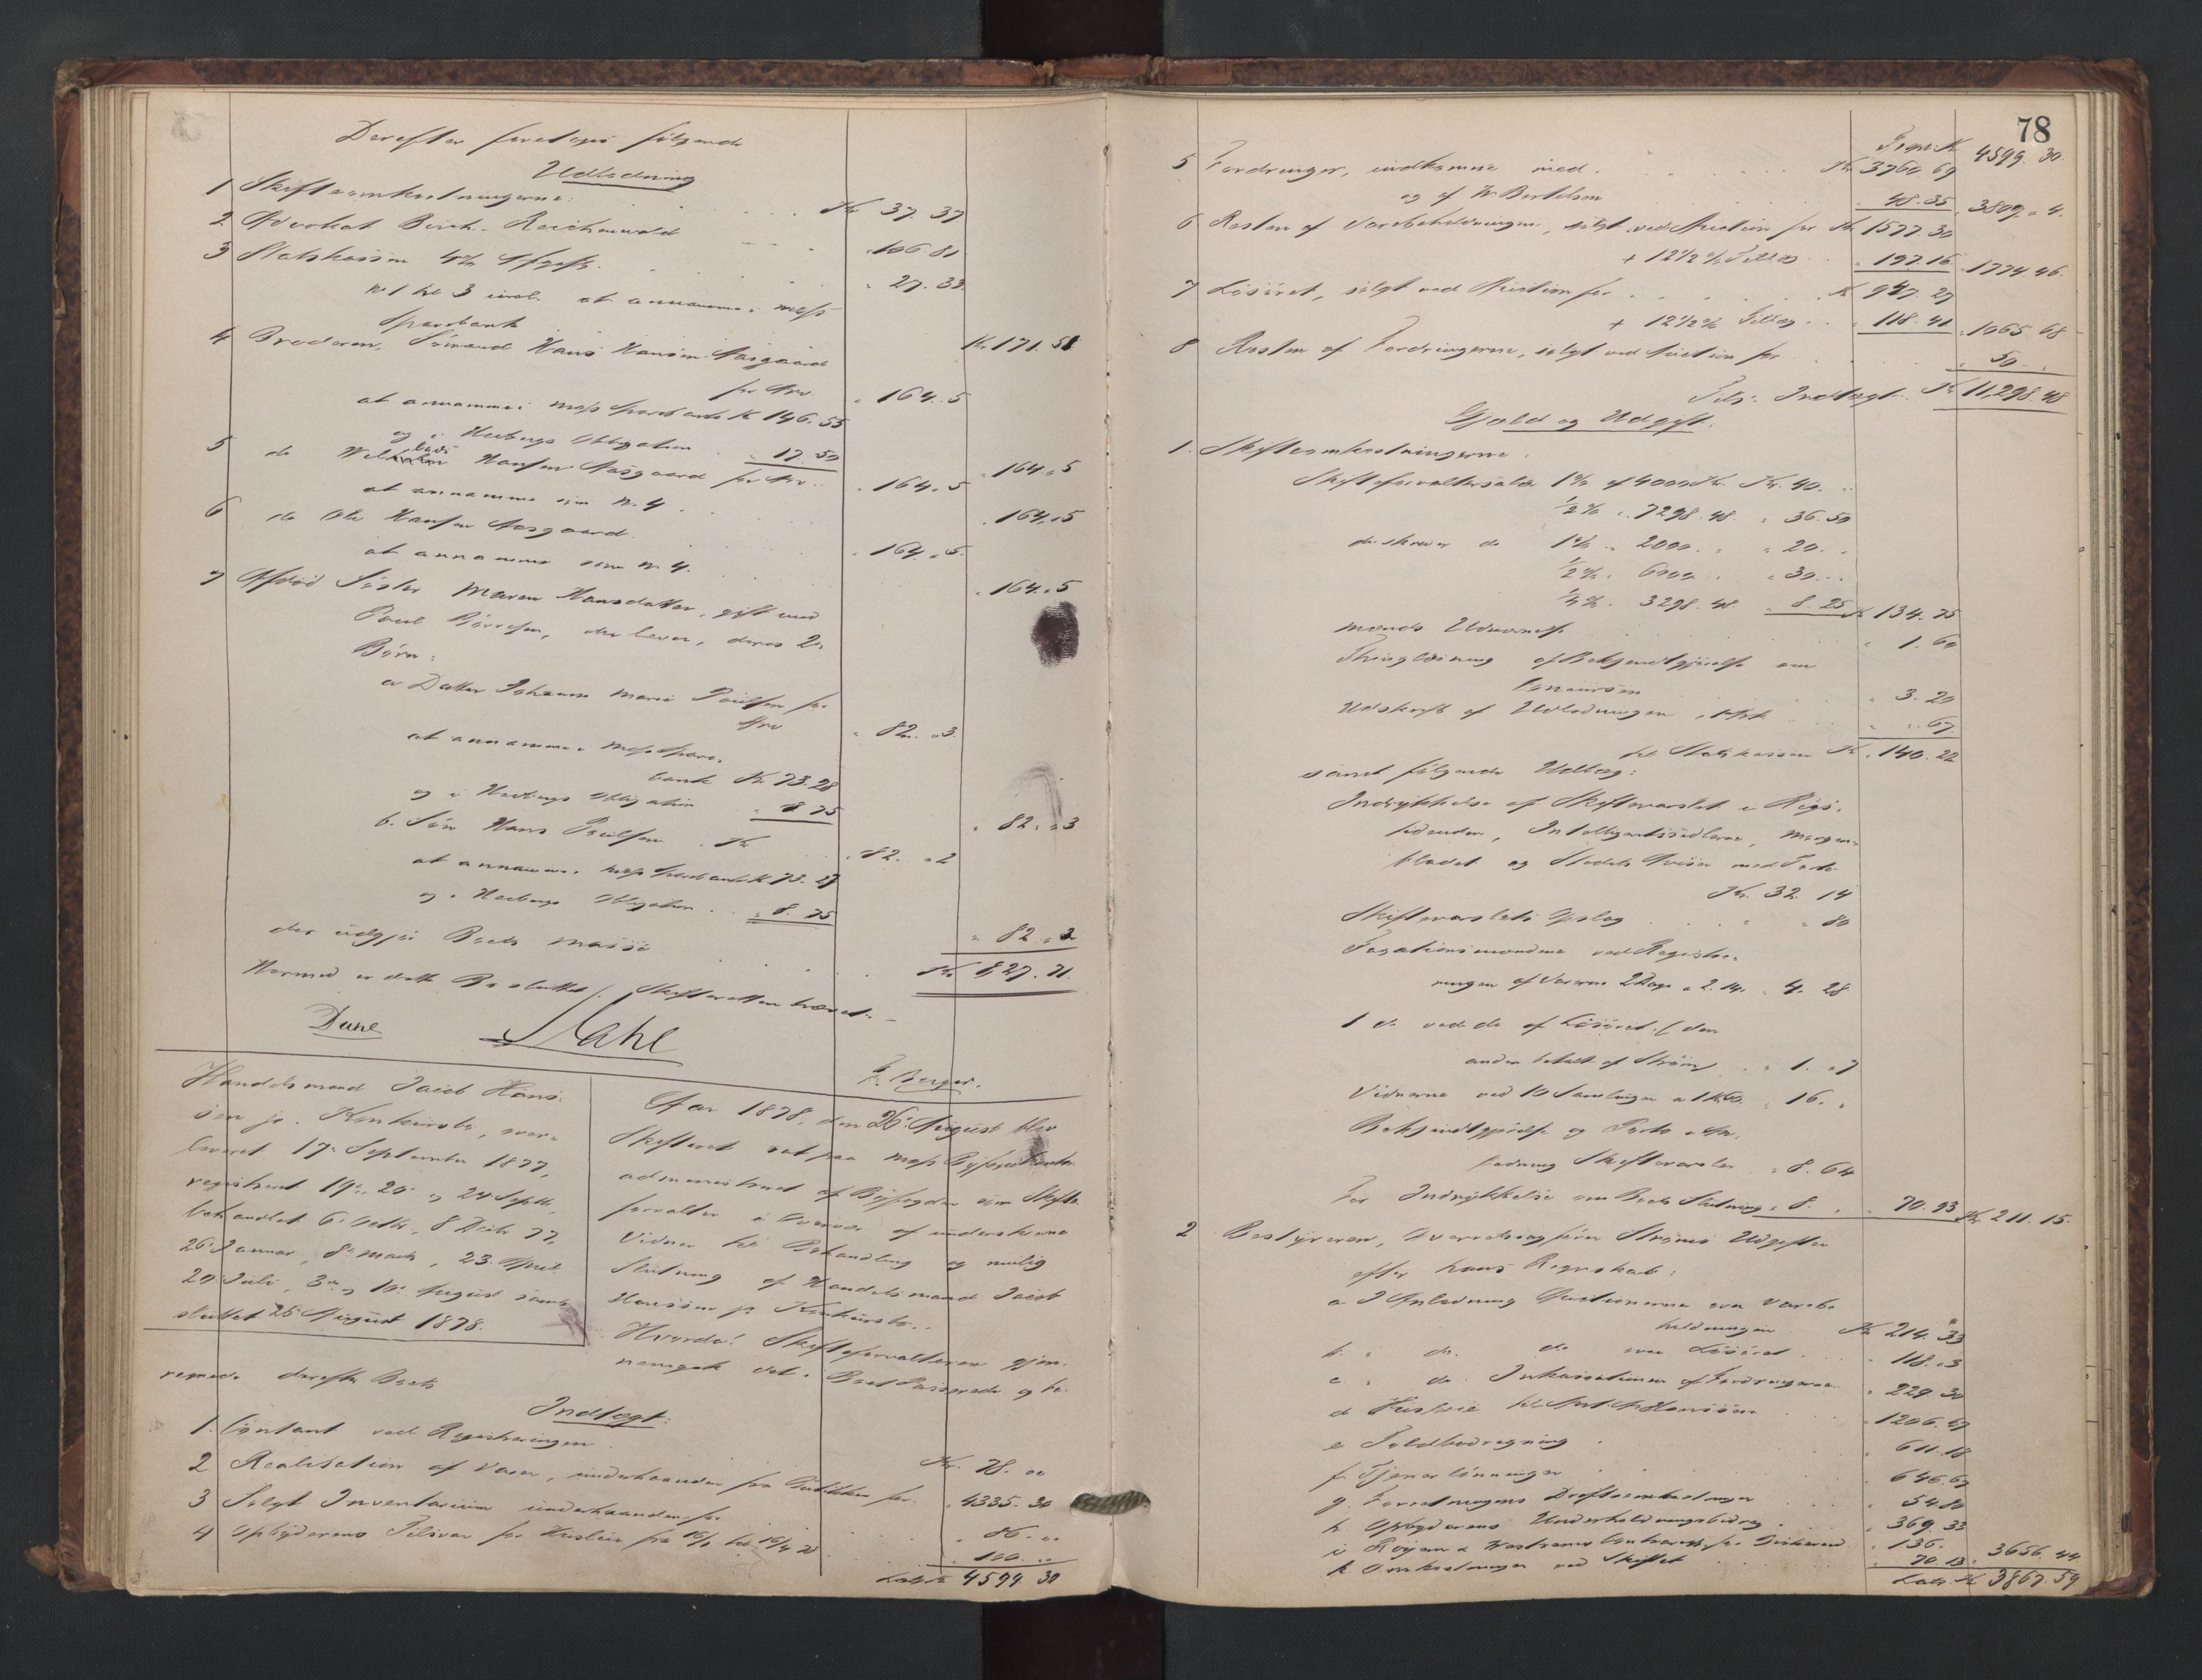 Derefter foretages følgende
Udlodning
1 Skifteomkostningerne: Kr 37. 37
2 Advokat Birch-Reichenwald " 106. 81
3 Statskassen 4% Afgift " 27. 33
No 1 til 3 incl. at annamme i Moss
Sparebank Kr. 171. 51
4 Broderen, Sømand Hans Hansen Aasgaard
for Arv " 164. 5
at annamme i Moss Sparebank Kr 146. 55
og i Obligation 17. 50
" 164. " 5
5 do Hansen Aasgaard for Arv " 164. 5
at annamme som No. 4 " 164. " 5
6 do Ole Hansen Aasgaard " 164 " 5
at annamme som No 4. " 164. " 5
7 Afdød Søster Maren Hansdatter, gift med
Poul, der lever, deres 2
Børn:
a Datter Johanne Marie Poulsen for
Arv " 82. " 3
at annamme i Moss Spare
bank Kr 73. 28
og i Obligation " 8. 75
" 82. " 3
b. Søn Hans Poulsen Kr " 82. " 2
at annamme i Moss Sparebank Kr 73. 27
og i Obligation " 8. 75
" 82. " 2
der udgjør Boets Masse Kr 827. 71.
Hermed er dette Bo sluttet. Skifteretten hævet.
Dahl
G. Berger.
Handelsmand Jacob Hans
sen jr. Konkursbo, over
leveret 17de September 1877,
registreret 19de, 20 og 24 Septb,
behandlet 6te Octbr, 8 Decbr 77,
26 Januar, 8de Marts, 23. April
20 Juli, 3die og 10de August samt
sluttet 26 August 1878.
Aar 1878, den 26 August blev
Skifteret sat paa Moss Byfogedkontor
administreret af Byfogden som Skifte
forvalter i Overvær af underskrevne
Vidner til Behandling og mulig
Slutning af Handelsmand Jacob
Hanssen jr Konkursbo.
Hvorda! Skifteforvalteren gjen
nemgik det i Boet Passerede og be
regnede derefter Boets
Indtægt:
1. Contant ved Registreringen Kr. 78. "
2 Realisation af Varer, underhaanden fra Butikken for " 4335. 30
3 Solgt Inventarium underhaanden for " 86. "
4 Opbyderens Tilsvar for Husleie fra til " 100. "
Lats Kr 4599 30
78
Transp. Kr 4599. 30.
5 Fordringer, indkomne med Kr 3760. 69
og af Bertelsen " 48. 35 " 3809. " 4.
6 Resten af Varebeholdningen, solgt ved Auction for Kr 1577. 30
+ 12 1/2 % Tillæg " 197. 16 " 1774 46
7 Løsøret, solgt ved Auction for Kr 947. 27
+ 12 1/2 % Tillæg " 118. 41 " 1065. 68
8 Resten af Fordringerne, solgt ved Auction for " 50 "
Tils. Indtægt Kr 11,298. 48
Gjæld og Udgift.
1. Skifteomkostningerne
Skifteforvaltersalær 1% af 4000 Kr. Kr. 40. "
1/2 % " 7298. 48 " 36. 50
do 1% " 2000. " " 20. "
1/2 % " 6000. " 30. "
1/4 % " 3298. 48 " 8. 25 Kr 134. 75
Mænds Udnævnelse " 1. 60
Thinglæsning af Bekjendtgjørelse om
Concursen " 3. 20
Udskrift af Udlodningen " " 67
til Statskassen Kr 140. 22
samt følgende Udlæg:
Indrykkelse af Skiftevarslet i Rigs
tidenden, Intelligentssedlerne, Morgen
bladet og Stedets Avis med Porto
Kr. 32. 14
Skiftevarslets Opslag " " 80
Taxationsmændene ved Registre
ringen af Varerne 2 Dage a 2. 14 " 4. 28
1 do ved do af Løsøret (den
anden betalt af Strøm " 1. " 7
Vidnerne ved 10 Samlinger a 1 Kr 60 " 16. "
Bekjendtgjørelse og Porto
Skiftevarslet " 8. 64
For Indrykkelse om Boets Slutning " 8. " " 70. 93 Kr. 211. 15.
2 Bestyreren, Overretssagfører Strøms Udgifter
efter hans Regnskab:
a I Anledning Auctionerne over Varebe
holdningen Kr 214. 33
b. " do. do over Løsøret " 118. " 3
c. " do. Inkassationen af Fordringerne " 229 30
d Husleie til Hanssen " 1206. 47
e " 611. 18
f. Tjenerlønninger " 646. 67
g. Forretningens " 54 80
h. Opbyderens Underholdningsbidrag " 369. 33
i " 136. "
k Omkostninger ved Skiftet " 70 13 " 3656. 44
Lats. Kr 3867. 59